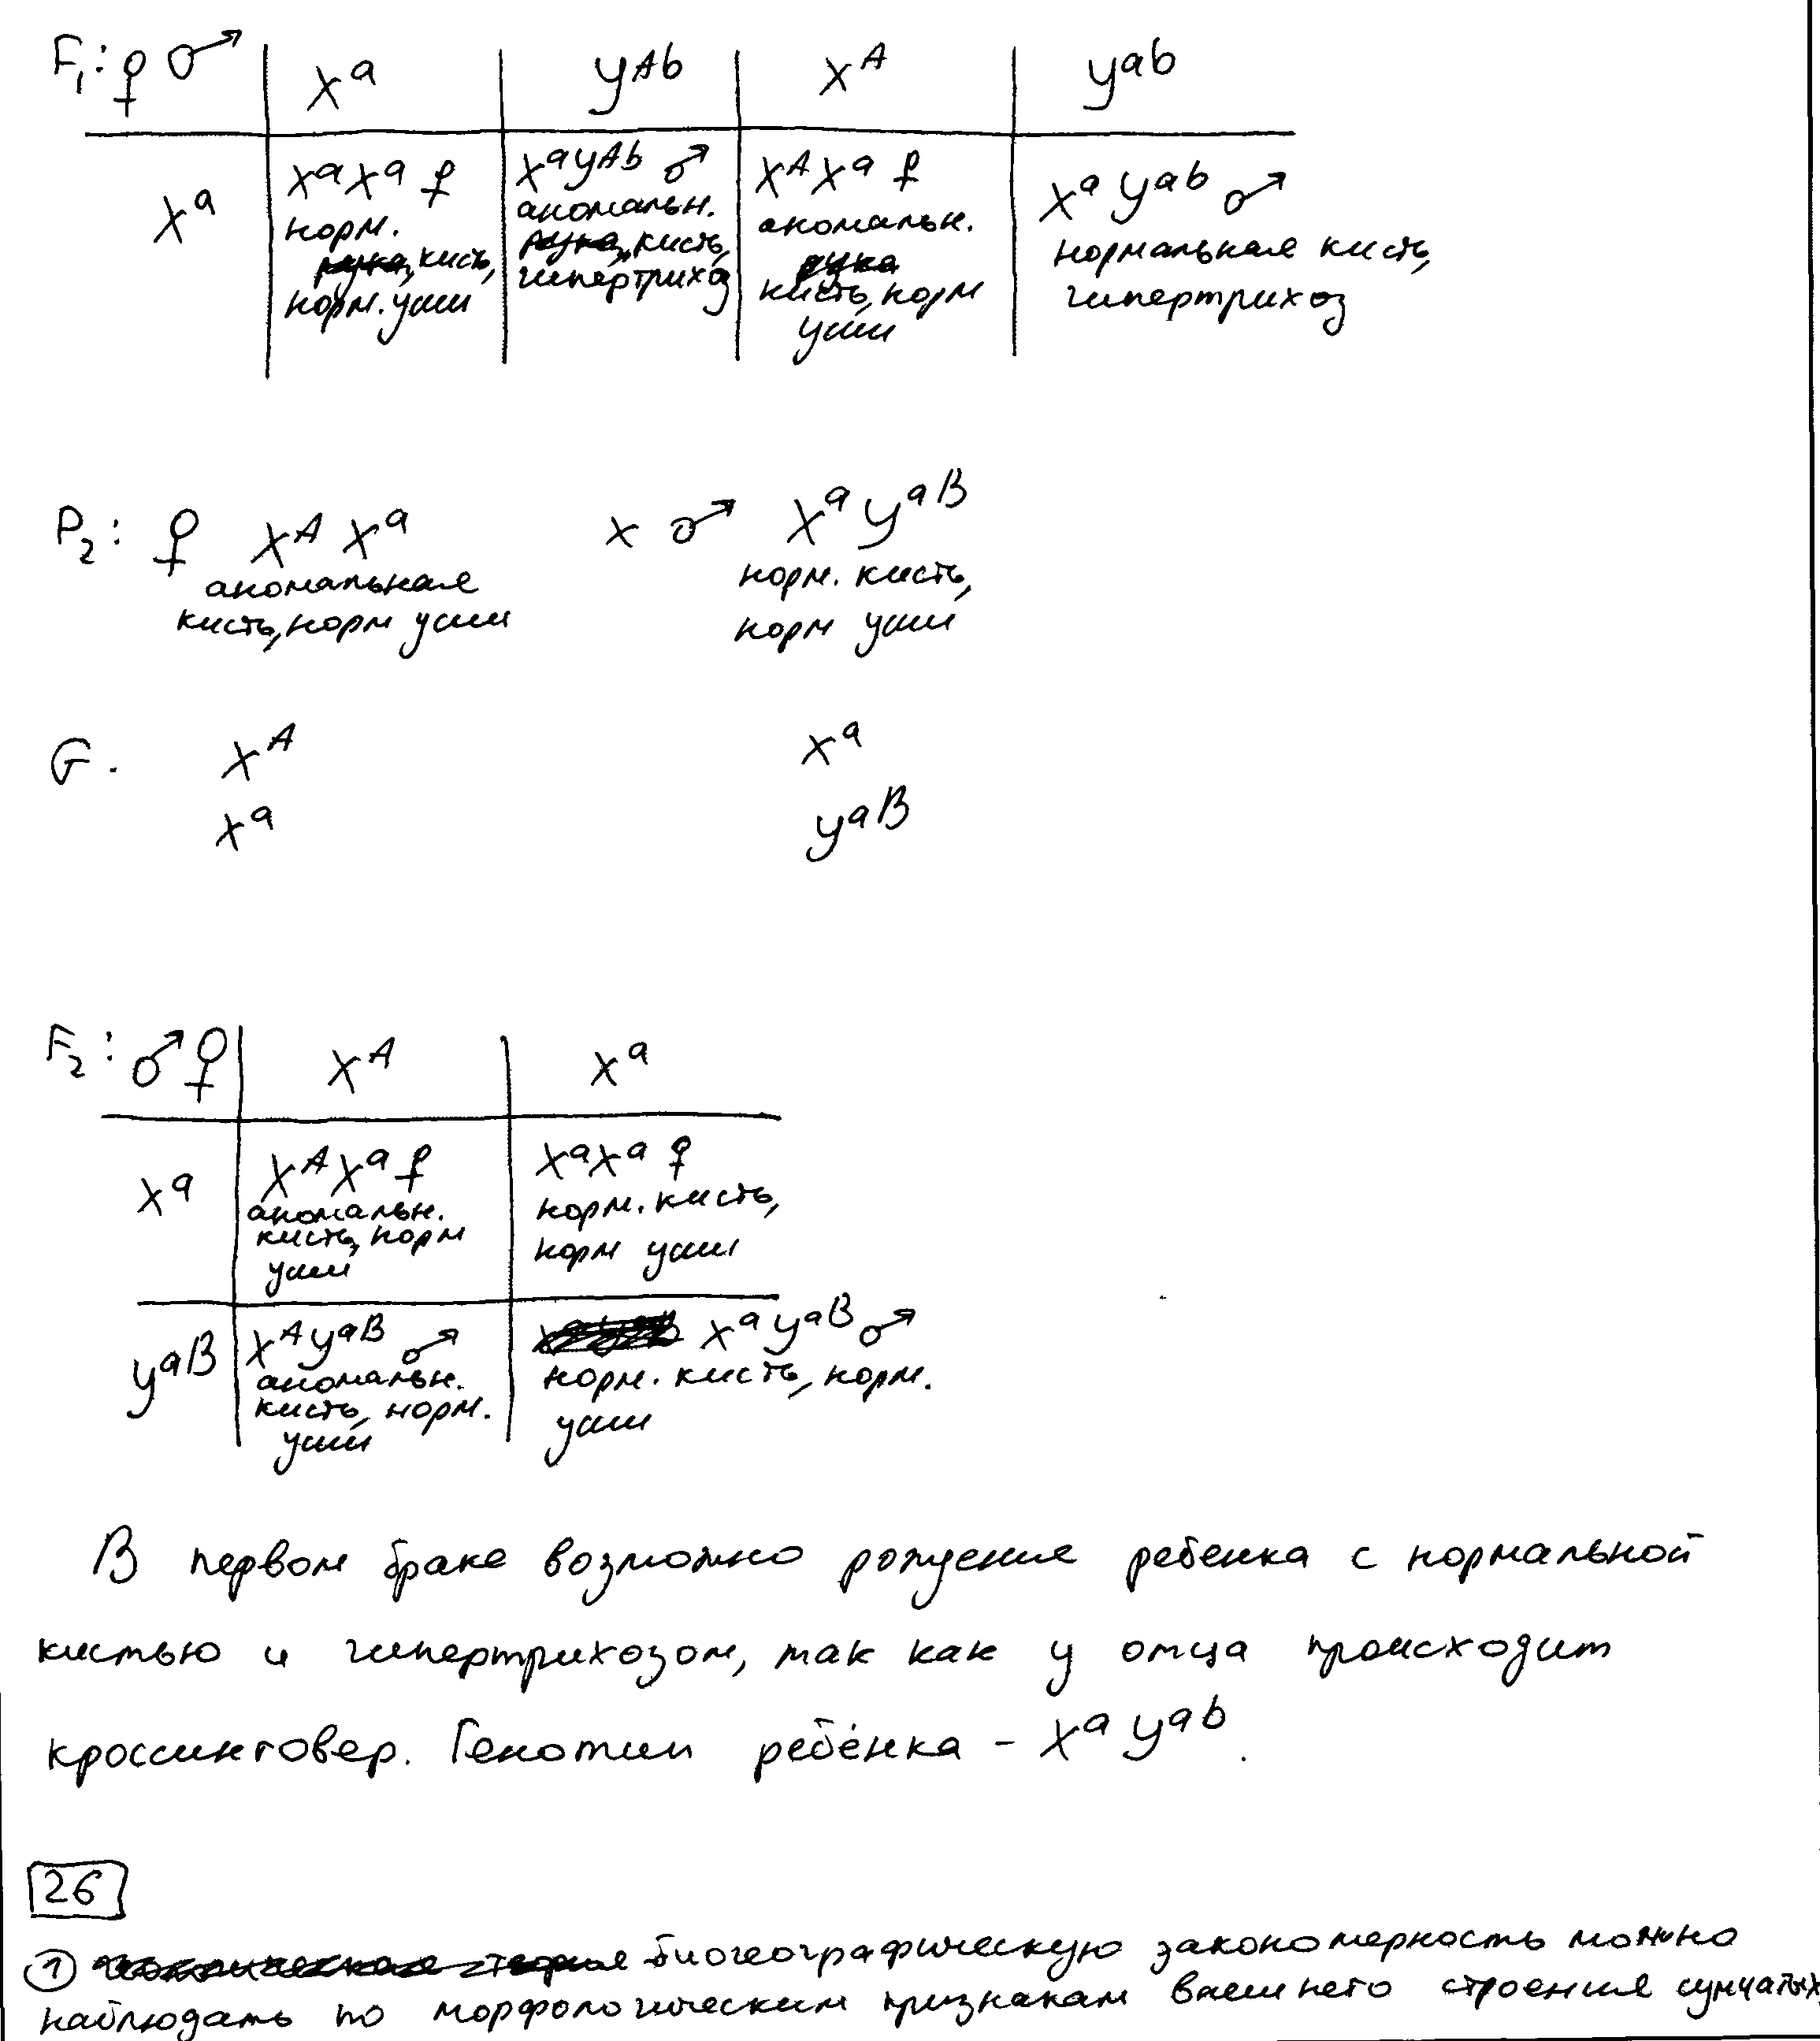 F₁: ♀ ♂ Xᵃ yᴬᵇ Xᴬ yᵃᵇ
Xᵃ
XᵃXᵃ ♀
норм.
кисть,
норм. уши
Xᵃyᴬᵇ ♂
аномальн.
кисть,
гипертрихоз
XᴬXᵃ ♀
аномальн.
кисть, норм
уши
Xᵃ yᵃᵇ ♂
нормальная кисть,
гипертрихоз
P₂: ♀ Xᴬ Xᵃ x ♂ Xᵃ yᵃᴮ
аномальная
кисть, норм уши
норм. кисть,
норм уши
G. Xᴬ Xᵃ
Xᵃ yᵃᴮ
F₂: ♂ ♀ Xᴬ Xᵃ
Xᵃ
XᴬXᵃ ♀
аномальн.
кисть, норм
уши
XᵃXᵃ ♀
норм. кисть,
норм уши
yᵃᴮ
Xᴬyᵃᴮ ♂
аномальн.
кисть, норм.
уши
Xᵃyᵃᴮ ♂
норм. кисть, норм.
уши
В первом браке возможно рождение ребенка с нормальной
кистью и гипертрихозом, так как у отца происходит
кроссинговер. Генотип ребёнка - Xᵃ yᵃᵇ.
26
① биогеографическую закономерность можно
наблюдать по морфологическим признакам внешнего строения сумчатых